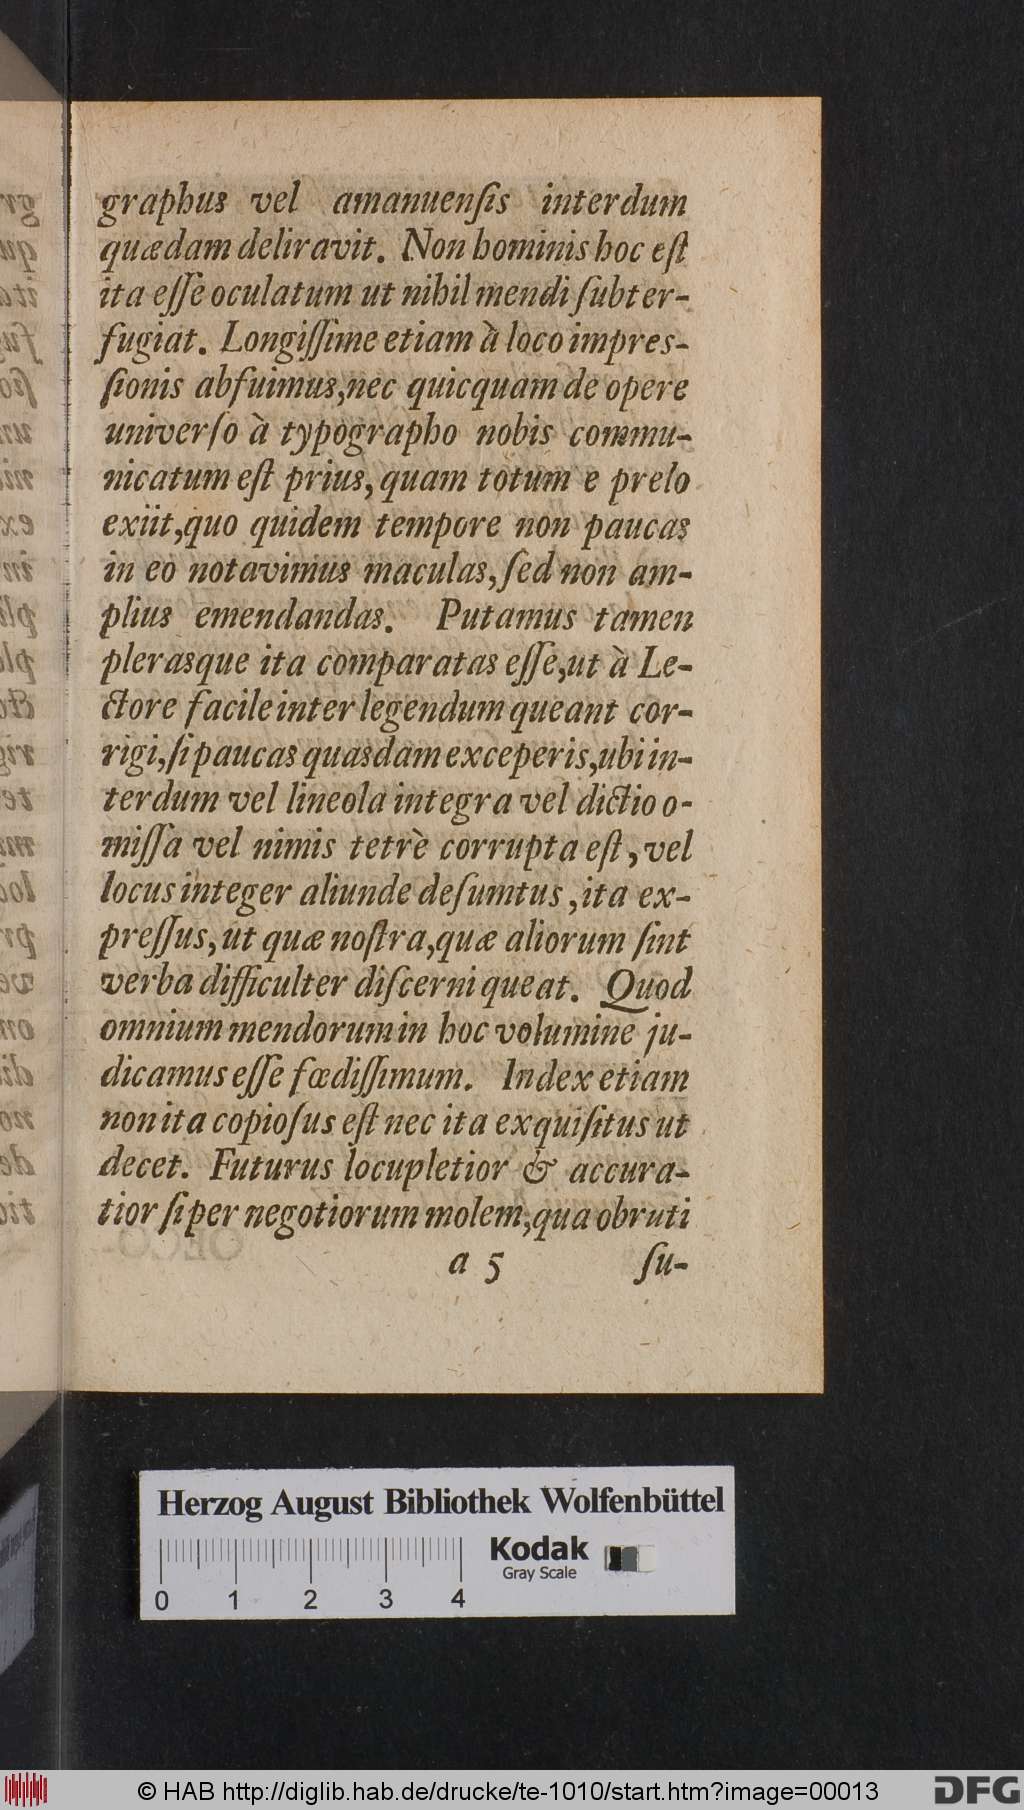 graphus vel amanuenſis interdum
quædam deliravit. Non hominis hoc eſt
ita eſſe oculatum ut nihil mendi ſubter-
fugiat. Longiſſime etiam à loco impres-
ſionis abfuimus, nec quicquam de opere
univerſo à typographo nobis commu-
nicatum eſt prius, quam totum e prelo
exiit, quo quidem tempore non paucas
in eo notavimus maculas, ſed non am-
plius emendandas. Putamus tamen
plerasque ita comparatas eſſe, ut à Le-
ctore facile inter legendum queant cor-
rigi, ſi paucas quasdam exceperis, ubi in-
terdum vel lineola integra vel dictio o-
miſſa vel nimis tetrè corrupta eſt, vel
locus integer aliunde deſumtus, ita ex-
preſſus, ut quæ noſtra, quæ aliorum ſint
verba difficulter diſcerni queat. Quod
omnium mendorum in hoc volumine ju-
dicamus eſſe fœdiſſimum. Index etiam
non ita copioſus eſt nec ita exquiſitus ut
decet. Futurus locupletior & accura-
tior ſi per negotiorum molem, qua obruti
a 5 ſu-
Herzog August Bibliothek Wolfenbüttel
Kodak
Gray Scale
0 1 2 3 4
© HAB http://diglib.hab.de/drucke/te-1010/start.htm?image=00013
DFG